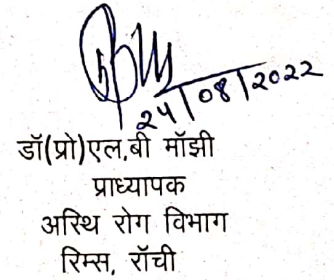 24/08/2022
डॉ(प्रो)एल.बी मॉझी
प्राध्यापक
अस्थि रोग विभाग
रिम्स, रॉची